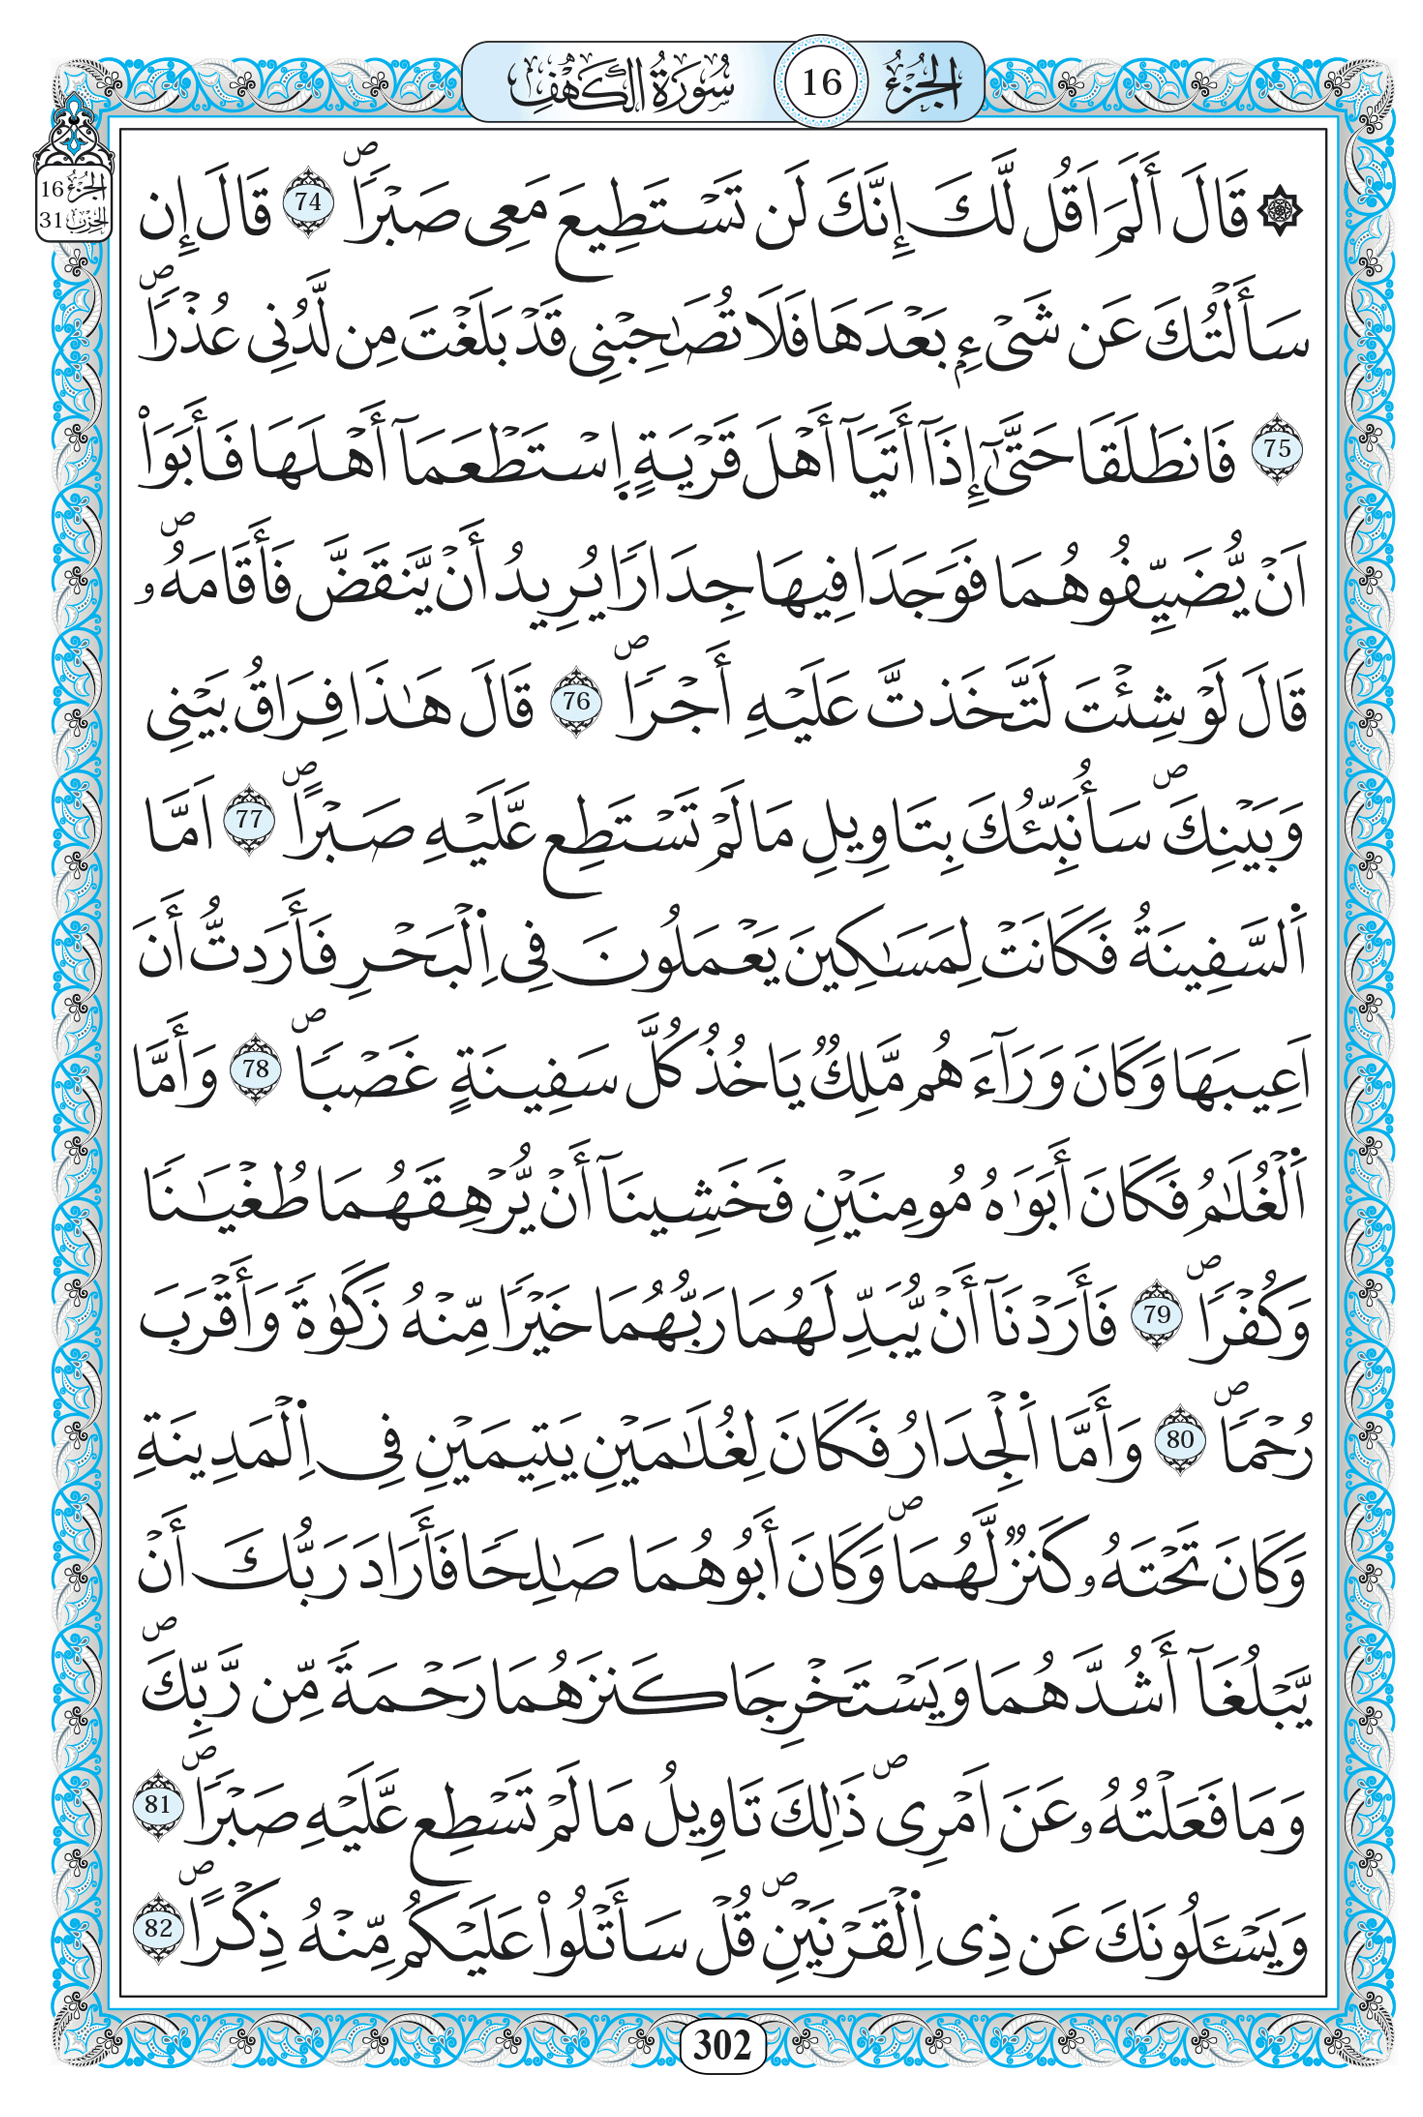 الجُزْءُ 16 سُورَةُ الكَهْفِ
الجُزْءُ 16
الحِزْبُ 31
۞ قَالَ أَلَمَ اَقُل لَّكَ إِنَّكَ لَن تَسْتَطِيعَ مَعِى صَبْراٗۖ 74 قَالَ إِن
سَأَلْتُكَ عَن شَىْءِۢ بَعْدَهَا فَلَا تُصَٰحِبْنِى قَدْ بَلَغْتَ مِن لَّدُنِى عُذْراٗۖ
75 فَانطَلَقَا حَتَّىٰٓ إِذَآ أَتَيَآ أَهْلَ قَرْيَةٍ اِ۪سْتَطْعَمَآ أَهْلَهَا فَأَبَوَاْ
اَنْ يُّضَيِّفُوهُمَا فَوَجَدَا فِيهَا جِدَاراٗ يُرِيدُ أَنْ يَّنقَضَّ فَأَقَامَهُۥۖ
قَالَ لَوْ شِئْتَ لَتَّخَذتَّ عَلَيْهِ أَجْراٗۖ 76 قَالَ هَٰذَا فِرَاقُ بَيْنِى
وَبَيْنِكَۖ سَأُنَبِّئُكَ بِتَاوِيلِ مَا لَمْ تَسْتَطِع عَّلَيْهِ صَبْراًۖ 77 اَمَّا
اَ۬لسَّفِينَةُ فَكَانَتْ لِمَسَٰكِينَ يَعْمَلُونَ فِى اِ۬لْبَحْرِ فَأَرَدتُّ أَنَ
اَعِيبَهَا وَكَانَ وَرَآءَهُم مَّلِكٞ يَاخُذُ كُلَّ سَفِينَةٍ غَصْباٗۖ 78 وَأَمَّا
اَ۬لْغُلَٰمُ فَكَانَ أَبَوَٰهُ مُومِنَيْنِ فَخَشِينَآ أَنْ يُّرْهِقَهُمَا طُغْيَٰناٗ
وَكُفْراٗۖ 79 فَأَرَدْنَآ أَنْ يُّبَدِّلَهُمَا رَبُّهُمَا خَيْراٗ مِّنْهُ زَكَوٰةٗ وَأَقْرَبَ
رُحْماٗۖ 80 وَأَمَّا اَ۬لْجِدَارُ فَكَانَ لِغُلَٰمَيْنِ يَتِيمَيْنِ فِى اِ۬لْمَدِينَةِ
وَكَانَ تَحْتَهُۥ كَنزٞ لَّهُمَاۖ وَكَانَ أَبُوهُمَا صَٰلِحاٗ فَأَرَادَ رَبُّكَ أَنْ
يَّبْلُغَآ أَشُدَّهُمَا وَيَسْتَخْرِجَا كَنزَهُمَا رَحْمَةٗ مِّن رَّبِّكَۖ
وَمَا فَعَلْتُهُۥ عَنَ اَمْرِىۖ ذَٰلِكَ تَاوِيلُ مَا لَمْ تَسْطِع عَّلَيْهِ صَبْراٗۖ 81
وَيَسْـَٔلُونَكَ عَن ذِى اِ۬لْقَرْنَيْنِۖ قُلْ سَأَتْلُواْ عَلَيْكُم مِّنْهُ ذِكْراًۖ 82
302